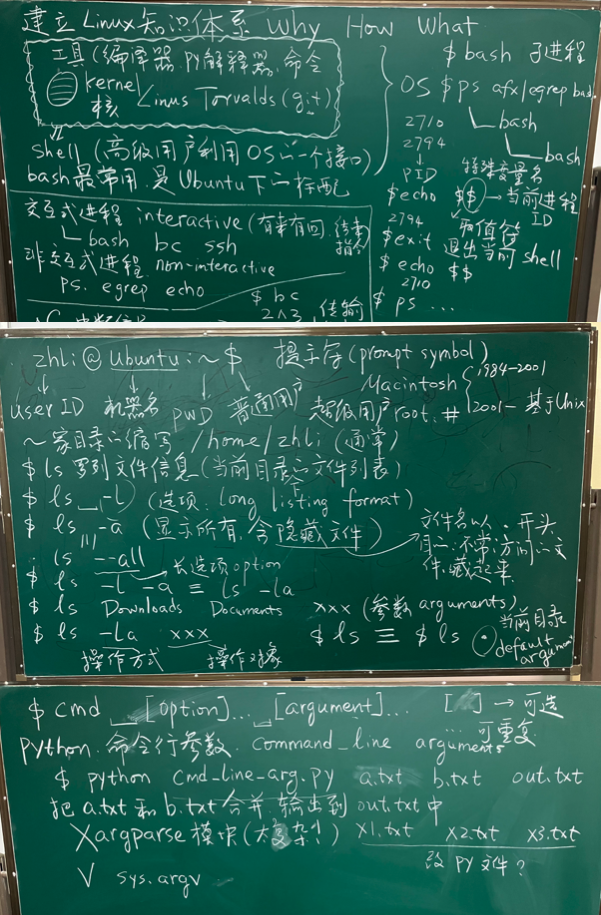 建立Linux知识体系 Why How What
工具(编译器.PY解释器.命令
kernel
核 Linus Torvalds(git)
shell (高级用户利用OS的一个接口)
bash最常用.是Ubuntu下的标配
交互式进程 interactive (有来有回.
bash bc ssh
非交互式进程. non-interactive
ps. egrep echo
$ bc
2^3 传输
$ bash 子进程
OS $ps afx|egrep bash
2710 bash
2794 bash
PID 特殊变量名
$echo $$ → 当前进程
ID
2794 取值符
$exit 退出当前 shell
$echo $$
2710
$ ps ...
zhli@Ubuntu:~$ 提示符(prompt symbol)
userID 机器名 PWD 普通用户 超级用户root.#
Macintosh 1984-2001
2001- 基于Unix
~家目录的缩写 /home/zhli (通常)
$ls 罗列文件信息(当前目录的文件列表)
$ls -l (选项. long listing format)
$ls -a (显示所有.含隐藏文件)
文件名以 . 开头
目的:不常访问的文
件.藏起来
ls --all 长选项option
$ls -l -a ≡ ls -la
$ls Downloads Documents xxx (参数arguments)
$ls -la xxx
操作方式 操作对象
$ls ≡ $ls . 当前目录
default
argument
$ cmd [option]... [argument]... [ ] → 可选
... 可重复
Python.命令行参数. command_line arguments
$ python cmd-line-arg.py a.txt b.txt out.txt
把a.txt和b.txt合并.输出到out.txt中
X argparse模块(太复杂!) x1.txt x2.txt x3.txt
改PY文件?
V sys.argv